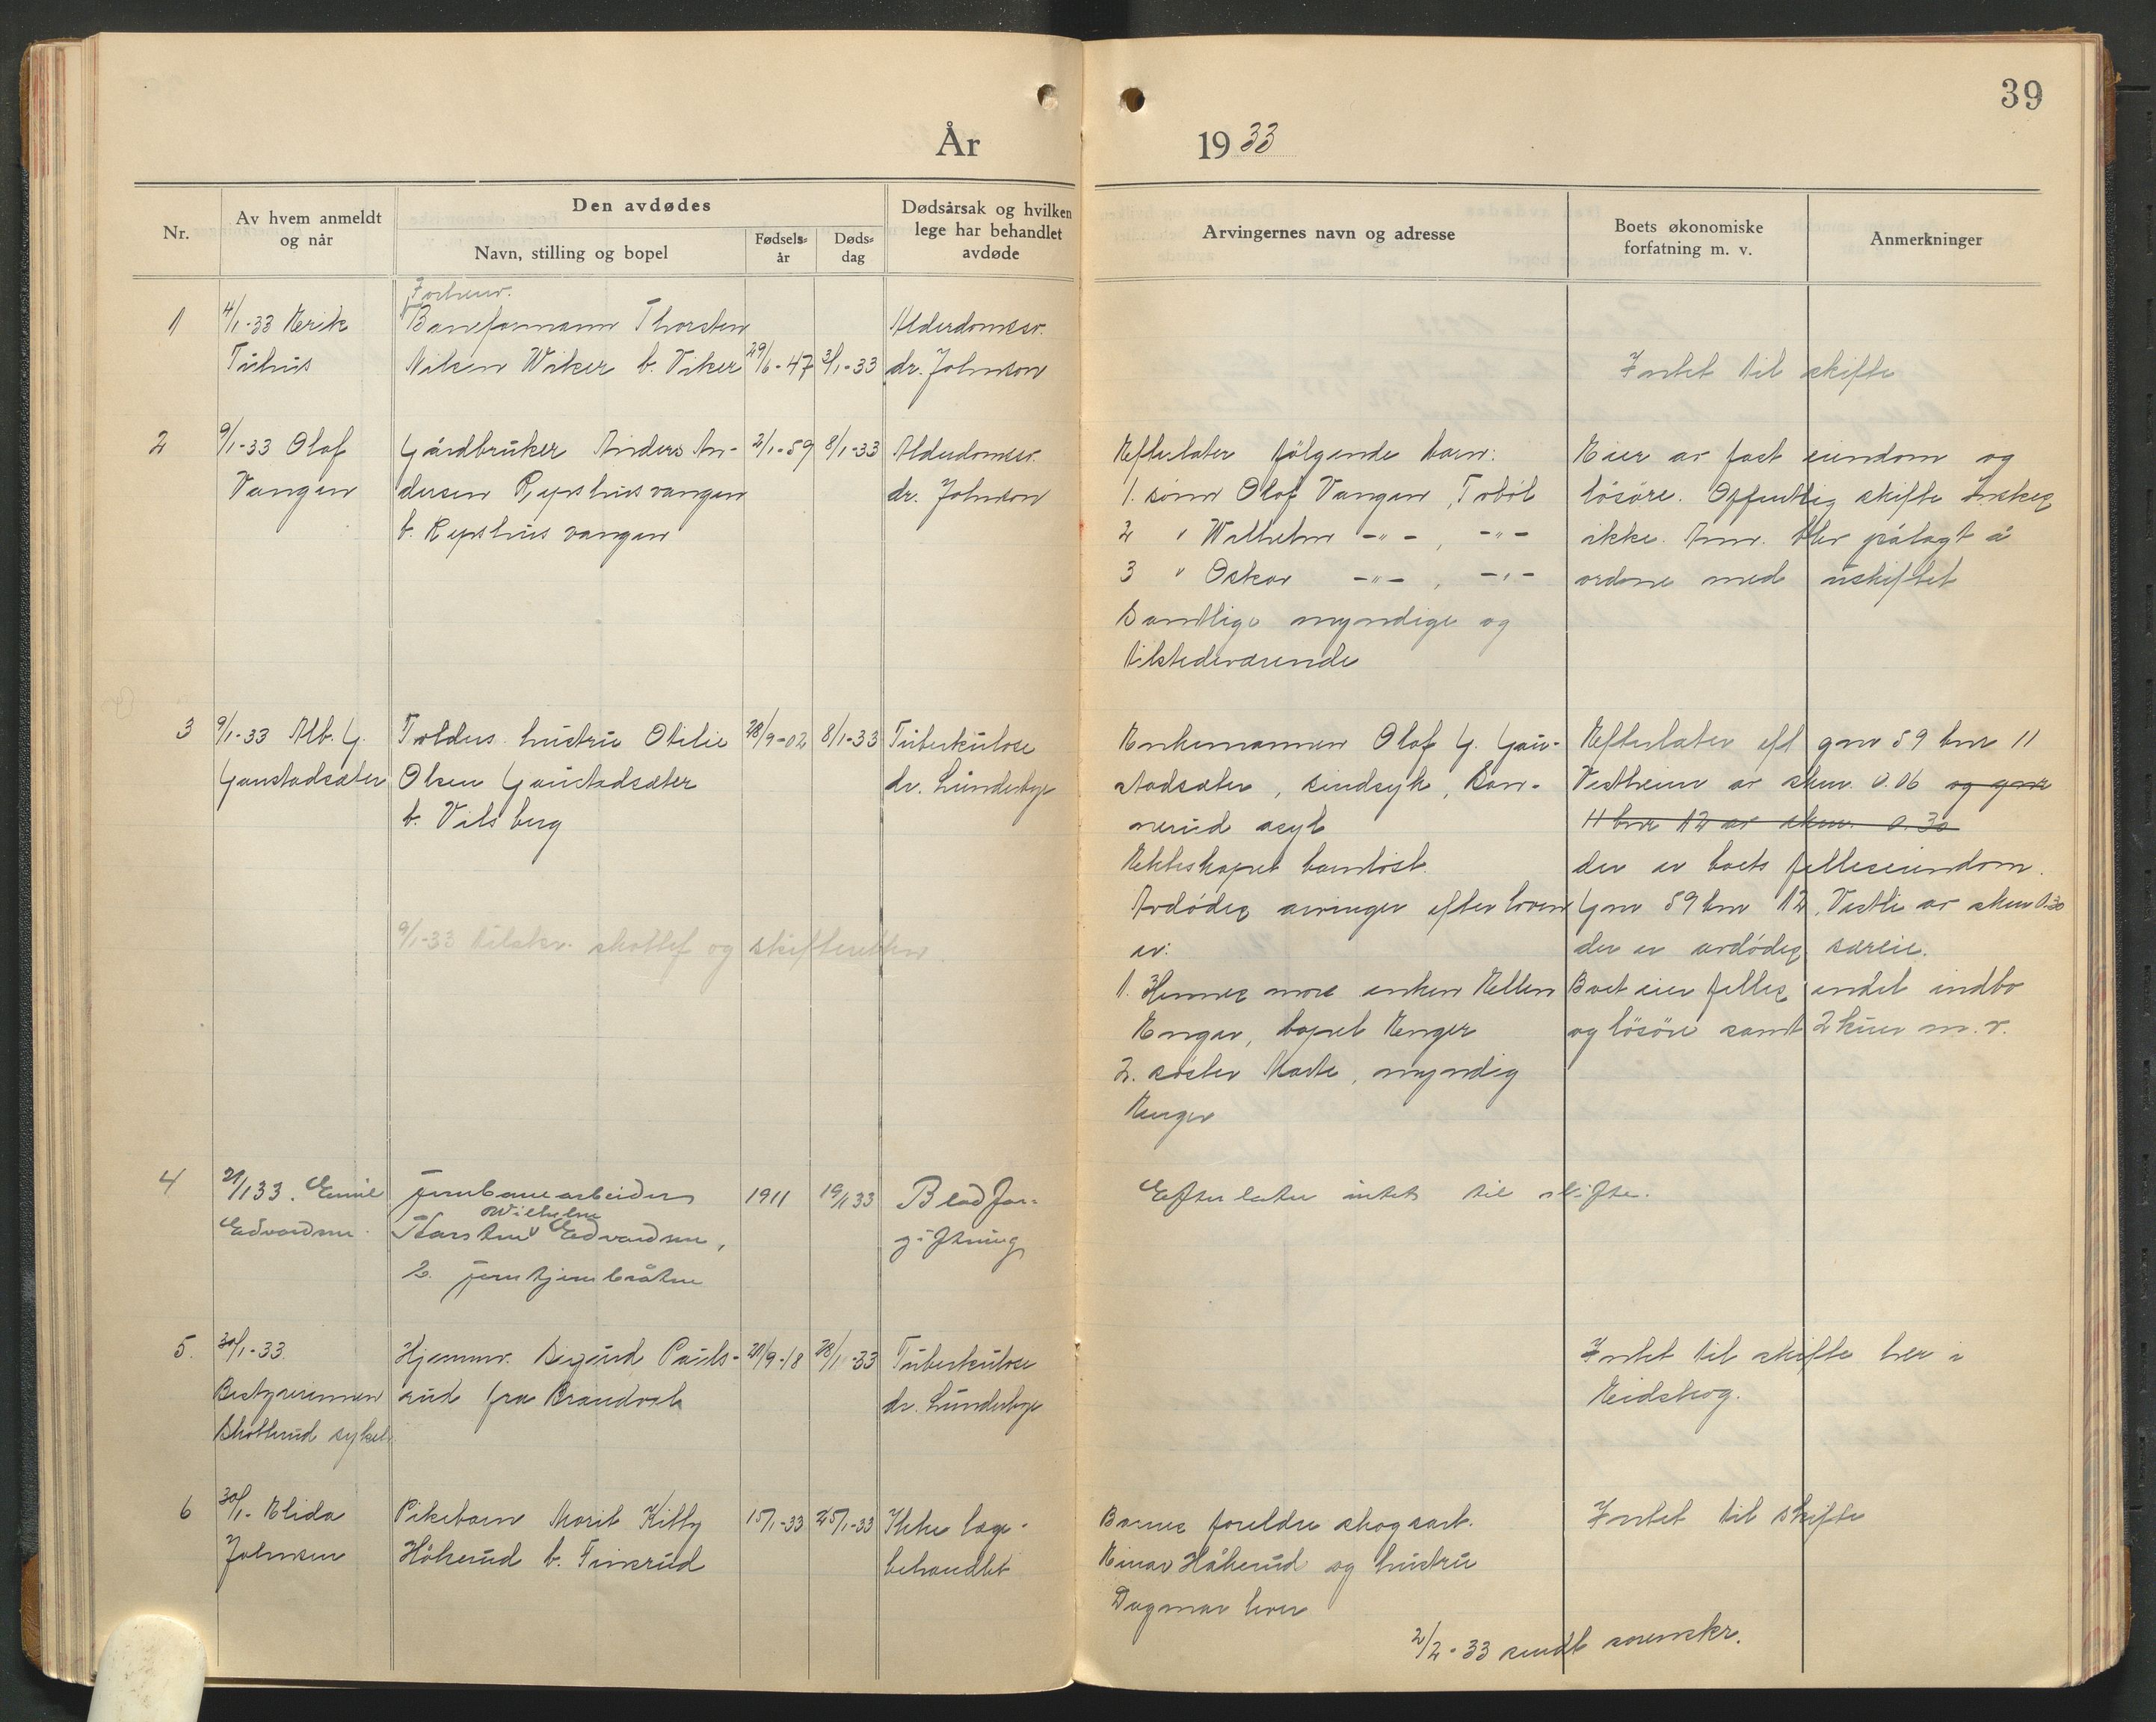 39
År 1933
Nr.
Av hvem anmeldt
og når
Den avdødes
Navn, stilling og bopel
Fødsels-
år
Døds-
dag
Dødsårsak og hvilken
lege har behandlet
avdøde
Arvingernes navn og adresse
Boets økonomiske
forfatning m. v.
Anmerkninger
1
4/1-33 Eerik
Tuhus
Forhenv.
Baneformann Thorsten
Wiker b. Viker
29/6-47
3/1-33
Alderdomssv.
dr. Johnson
Intet til skifte
2
9/1-33 Olaf
Vangen
Gårdbruker Anders An-
dersen Repshusvangen
b. Repshusvangen
2/1-59
8/1-33
Alderdomssv.
dr. Johnson
Efterlater følgende barn:
1. sønn Olaf Vangen, Tobøl
2 " Wilhelm -"-, -"-
3 " Oskar -"-, -"-
Samtlige myndige og
tilstedeværende
Eier av fast eiendom og
løsøre. Offentlig skifte ønskes
ikke. Anm. blev pålagt å
ordne med uskiftet
3
9/1-33 Alb. G.
Gaustadsæter
hustru Otilie
Olsen Gaustadsæter
b. Vilsberg
28/9-02
8/1-33
Tuberkulose
dr. Lunderbye
Enkemannen Olaf G. Gau-
stadsæter, sindsyk, San-
nerud asyl
Ekteskapet barnløst.
Avdødes arvinger efter loven
er:
1. Hennes mor enken Ellen
Enger, bopel Enger
2. søster Marte, myndig
Enger
Efterlater eft gnr 59 bnr 11
Vestheim av skm. 0.06 og gnr
11 bnr 12 av skm. 0.30
der er boets felleseiendom.
Gnr 59 bnr 12, Vestli av skm 0.30
der er avdødes særeie.
Boet eier felles endel indbo
og løsøre samt 2 kuer m. v.
9/1-33 tilskr. skattef og skifteretten.
4
21/1 33. Emil
Edvardsen.
jernbanearbeider
Wilhelm
Karsten Edvardsen,
b. jerntjernbråten
1911
19/1 33
Blodfor-
giftning
Efterlater intet til skifte.
5.
30/1-33.
Bestyrerinnen
Skotterud sykeh.
Hjemmv. Sigurd Pauls-
rud fra Brandval
21/9-18
28/1-33
Tuberkulose
dr. Lunderbye
Intet til skifte her i
Eidskog.
6
30/1- Elida
Johnsen
Pikebarn Marit Kitty
Håkerud b. Finsrud
15/1-33
25/1-33
Ikke læge-
behandlet
Barnes foreldre skogsarb.
Einar Håkerud og hustru
Dagmar lever
Intet til skifte
2/2-33 sendt sorenskr.